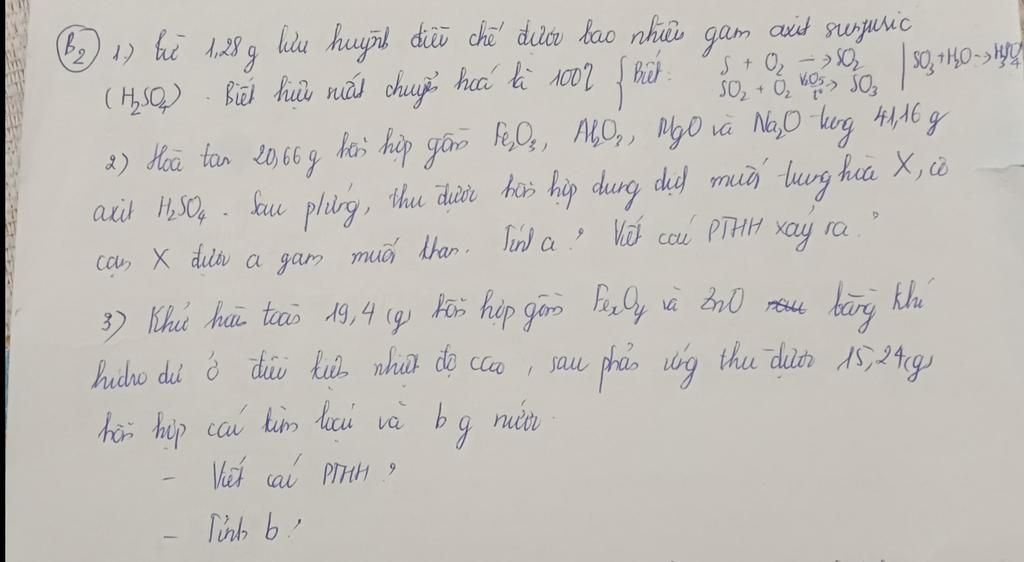 B2 1) Từ 1,28g lưu huỳnh điều chế được bao nhiêu gam axit sunfuric
(H₂SO₄). Biết hiệu suất chuyển hoá là 100% { Biết: S + O₂ → SO₂ | SO₃ + H₂O → H₂SO₄
SO₂ + O₂ V₂O₅ t° → SO₃
2) Hoà tan 20,66g hỗn hợp gồm Fe₂O₃, Al₂O₃, MgO và Na₂O trong 41,16g
axit H₂SO₄. Sau p/ứng, thu được hỗn hợp dung dịch muối trung hoà X, cô
cạn X được a gam muối khan. Tính a? Viết các PTHH xảy ra?
3) Khử hoàn toàn 19,4(g) hỗn hợp gồm FexOy và ZnO bằng khí
hidro dư ở điều kiện nhiệt độ cao, sau phản ứng thu được 15,24(g)
hỗn hợp các kim loại và b g nước.
- Viết các PTHH?
- Tính b?